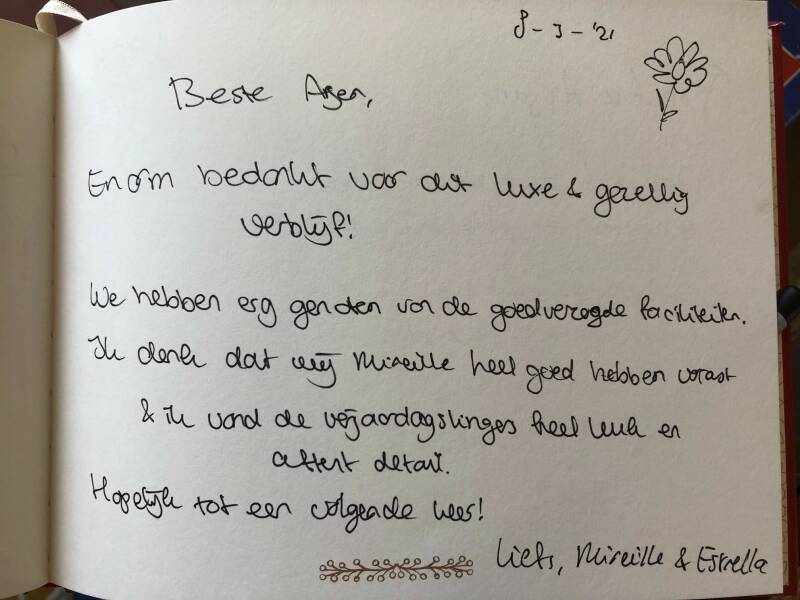 8-3-'21
Beste Arjen,
Enorm bedankt voor dit luxe & gezellig
verblijf!
We hebben erg genoten van de goedverzorgde faciliteiten.
Ik denk dat wij Mireille heel goed hebben verrast
& ik vond de verjaardagslinges heel leuk en
attent detail.
Hopelijk tot een volgende keer!
Liefs, Mireille & Estrella